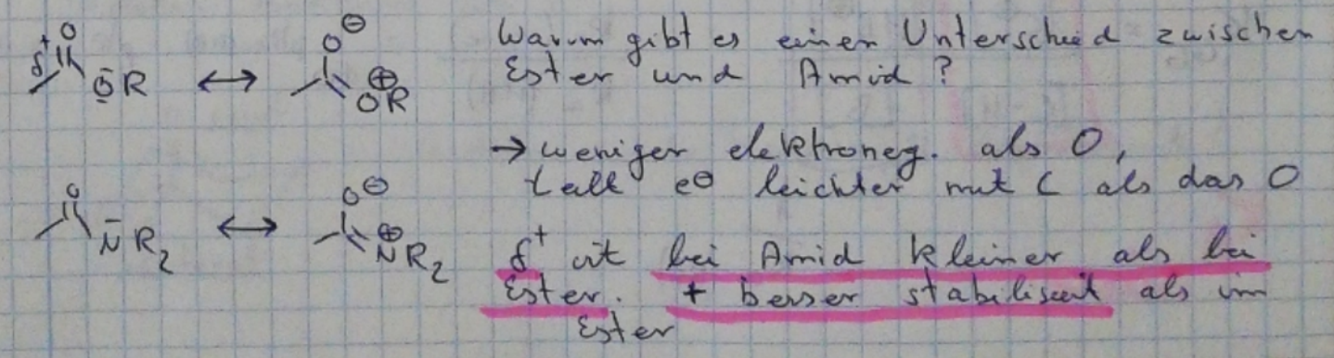 Warum gibt es einen Unterschied zwischen
Ester und Amid?
δ+ O OR ↔ O⊖ ⊕OR
→ weniger elektroneg. als O,
teilt e⊖ leichter mit C als das O
O N̄R₂ ↔ O⊖ ⊕NR₂
δ+ ist bei Amid kleiner als bei
Ester. + besser stabilisiert als im
Ester